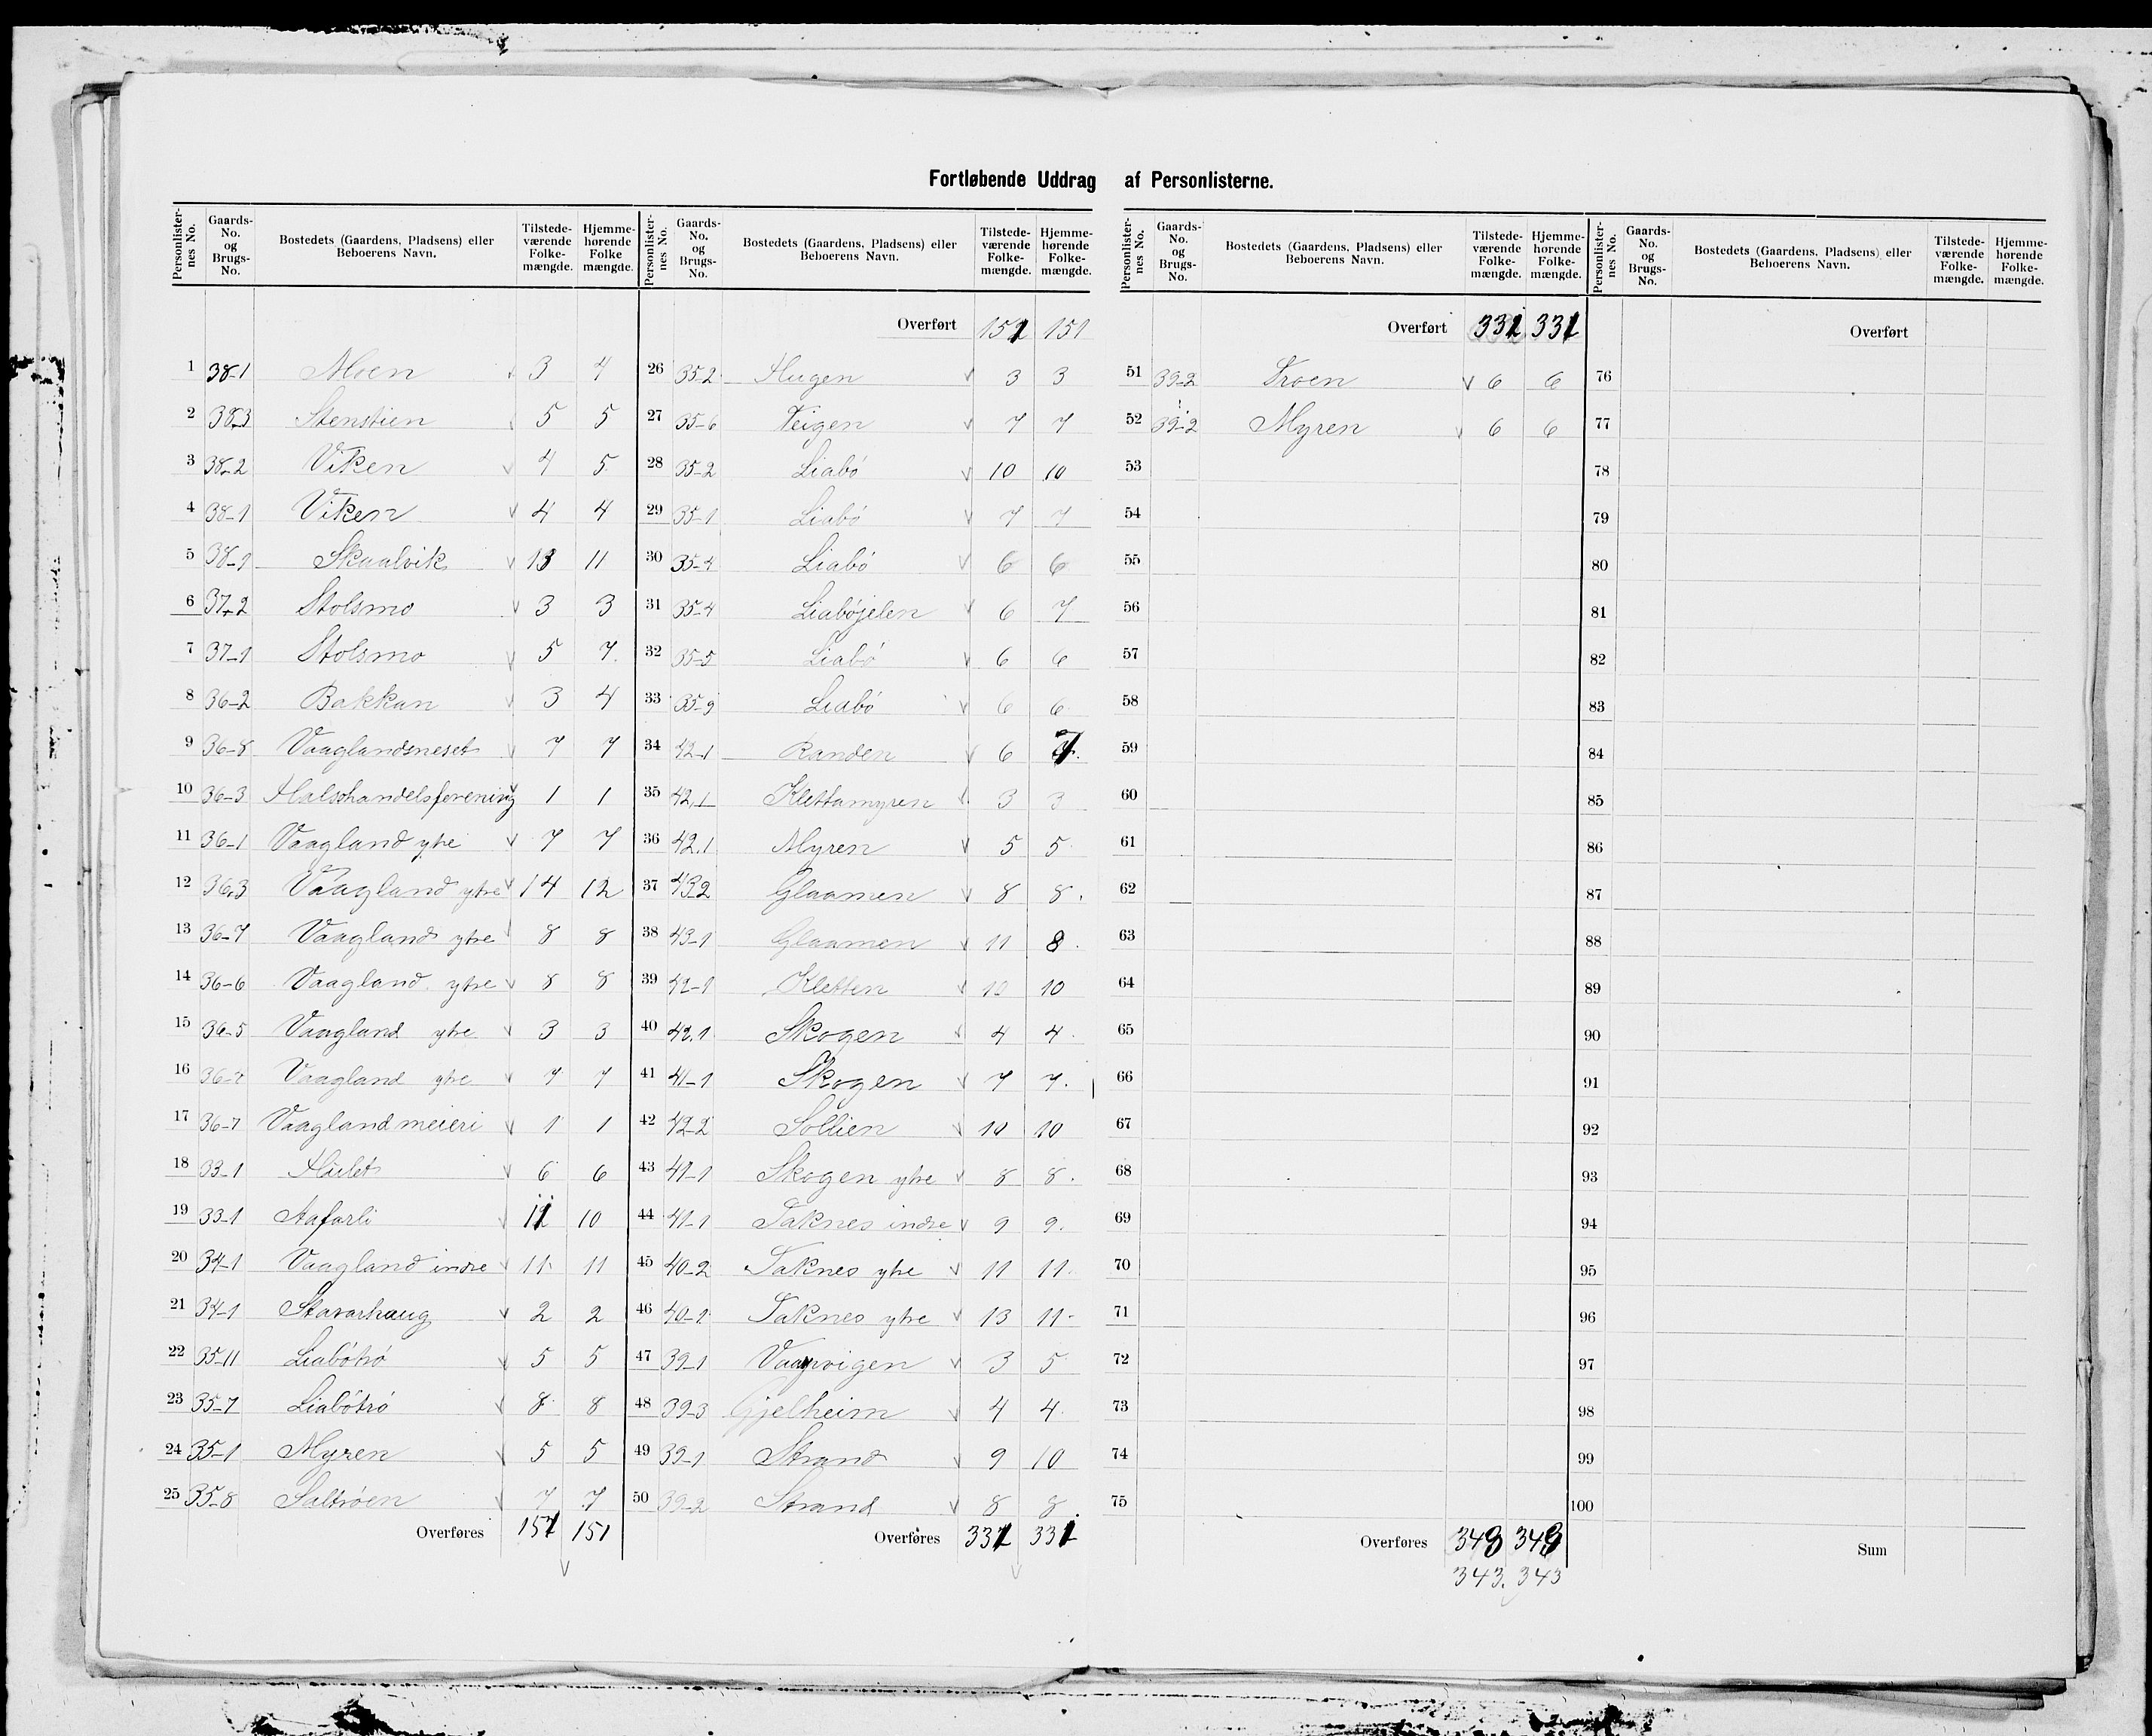 Fortløbende Uddrag af Personlisterne.
Personlister-nes No. | Gaards-No. og Brugs-No. | Bostedets (Gaardens, Pladsens) eller Beboerens Navn. | Tilstede-værende Folke-mængde. | Hjemme-hørende Folke mængde.
1 38-1 Moen v 3 4
2 38-3 Stenstien v 5 5
3 38-2 Viken v 4 5
4 38-1 Viken v 4 4
5 38-1 Skaalvik v 13 11
6 37-2 Stolsmo v 3 3
7 37-1 Stolsmo v 5 7
8 36-2 Bakkan v 3 4
9 36-8 Vaaglandsneset v 7 7
10 36-3 Halsahandelsforening v 1 1
11 36-1 Vaagland ytre v 7 7
12 36.3 Vaagland ytre v 14 12
13 36-7 Vaagland ytre v 8 8
14 36-6 Vaagland ytre v 8 8
15 36-5 Vaagland ytre v 3 3
16 36-2 Vaagland ytre v 7 7
17 36-7 Vaagland meieri v 1 1
18 33-1 Hulet v 6 6
19 33-1 Aafarli v 11 10
20 34-1 Vaagland indre v 11 11
21 34-1 Stavarhaug v 2 2
22 35-11 Liabötrö v 5 5
23 35-7 Liabötrö v 8 8
24 35-1 Myren v 5 5
25 35-8 Saltröen v 7 7
Overføres 151 151
Personlister-nes No. | Gaards-No. og Brugs-No. | Bostedets (Gaardens, Pladsens) eller Beboerens Navn. | Tilstede-værende Folke-mængde. | Hjemme-hørende Folke-mængde.
Overført 151 151
26 35-2 Haugen v 3 3
27 35-6 Teigen v 7 7
28 35-2 Liabö v 10 10
29 35-1 Liabö v 7 7
30 35-4 Liabö v 6 6
31 35-4 Liaböjelen v 6 7
32 35-5 Liabö v 6 6
33 35-9 Liabö v 6 6
34 42-1 Randen v 6 7
35 42-1 Klettamyren v 3 3
36 42.1 Myren v 5 5
37 43-2 Glaamen v 8 8
38 43-1 Glaamen v 11 8
39 42-1 Kletten v 10 10
40 42.1 Skogen v 4 4
41 41-1 Skogen v 7 7
42 42-2 Sollien v 10 10
43 41-1 Skogen ytre v 8 8
44 41-1 Taknes indre v 9 9
45 40-2 Taknes ytre v 11 11
46 40-1 Taknes ytre v 13 11
47 39-1 Vaagvigen v 3 5
48 39-3 Gjelheim v 4 4
49 39-1 Strand v 9 10
50 39-2 Strand v 8 8
Overføres 331 331
Personlister-nes No. | Gaards-No. og Brugs-No. | Bostedets (Gaardens, Pladsens) eller Beboerens Navn. | Tilstede-værende Folke-mængde. | Hjemme-hørende Folke-mængde.
Overført 331 331
51 39-2 Troen v 6 6
52 39-2 Myren v 6 6
53
54
55
56
57
58
59
60
61
62
63
64
65
66
67
68
69
70
71
72
73
74
75
Overføres 343 343
343. 343
Personlister-nes No. | Gaards-No. og Brugs-No. | Bostedets (Gaardens, Pladsens) eller Beboerens Navn. | Tilstede-værende Folke-mængde. | Hjemme-hørende Folke-mængde.
Overført
76
77
78
79
80
81
82
83
84
85
86
87
88
89
90
91
92
93
94
95
96
97
98
99
100
Sum